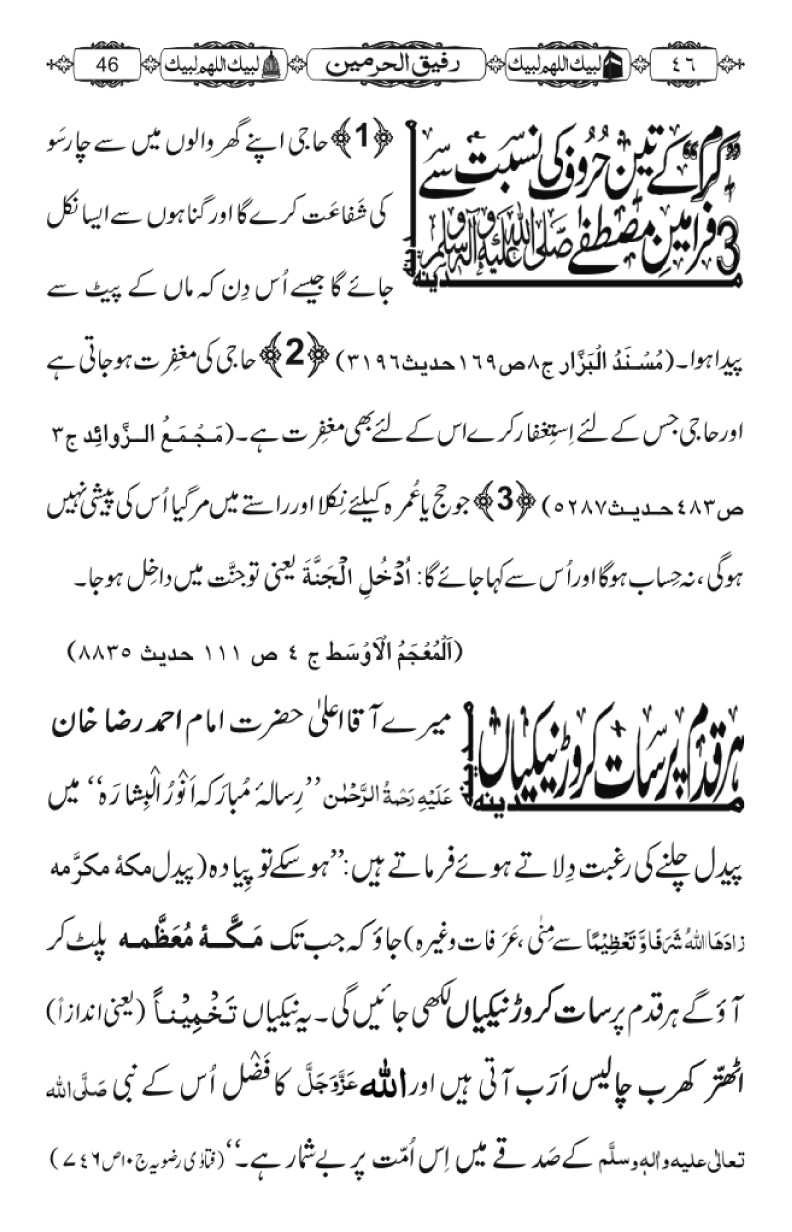 ٤٦ لبیك اللھم لبیك رفیق الحرمین لبیك اللھم لبیك 46
”کرم“ کے تین حُرُوف کی نسبت سے
3 فرامینِ مصطفٰے صَلَّی اللہُ عَلَیْہِ وَاٰلِہٖ وَسَلَّم
مدینہ
﴿1﴾ حاجی اپنے گھر والوں میں سے چار سَو
کی شَفاعَت کرے گا اور گناہوں سے ایسا نکل
جائے گا جیسے اُس دِن کہ ماں کے پیٹ سے
پیدا ہوا۔ (مُسْنَدُ الْبَزَّار ج۸ص۱۶۹حدیث۳۱۹۶) ﴿2﴾ حاجی کی مغفِرت ہو جاتی ہے
اور حاجی جس کے لئے اِستِغفار کرے اس کے لئے بھی مغفِرت ہے۔ (مَجْمَعُ الـزَّوائِد ج۳
ص۴۸۳حـدیـث۵۲۸۷) ﴿3﴾ جو حج یا عُمرہ کیلئے نِکلا اور راستے میں مرگیا اُس کی پیشی نہیں
ہوگی، نہ حِساب ہوگا اور اُس سے کہا جائے گا: اُدْخُلِ الْجَنَّۃَ یعنی تو جنَّت میں داخِل ہوجا۔
(اَلْمُعْجَمُ الْاَوْسَط ج ٤ ص ١١١ حدیث ٨٨٣٥)
ہر قدم پر سات کروڑ نیکیاں
مدینہ
میرے آقا اعلیٰ حضرت امام احمد رضا خان
عَلَیْہِ رَحْمَۃُ الـرَّحْمٰن ’’رِسالۂ مُبارَکہ اَنْوَرُ الْبِشارَہ‘‘ میں
پیدل چلنے کی رغبت دِلاتے ہوئے فرماتے ہیں: ’’ہوسکے تو پِیادہ (پیدل مکۂ مکرَّمہ
زادَھَا اللہُ شَرَفًا وَّ تَعْظِیْمًا سے مِنٰی، عَرَفات وغیرہ) جاؤ کہ جب تک مَـکَّـۂ مُعَظَّمـہ پلٹ کر
آؤ گے ہر قدم پر سات کروڑ نیکیاں لکھی جائیں گی۔ یہ نیکیاں تَخْمِیْناً (یعنی اندازاً)
اٹھتَّر کھرب چالیس اَرَب آتی ہیں اور اللہ عَزَّوَجَلَّ کا فَضْل اُس کے نبی صَلَّی اللہ
تعالٰی علیہ واٰلہٖ وسلَّم کے صَدقے میں اِس اُمّت پر بے شمار ہے۔‘‘ (فتاوٰی رضویہ ج۱۰ص۷٤٦)